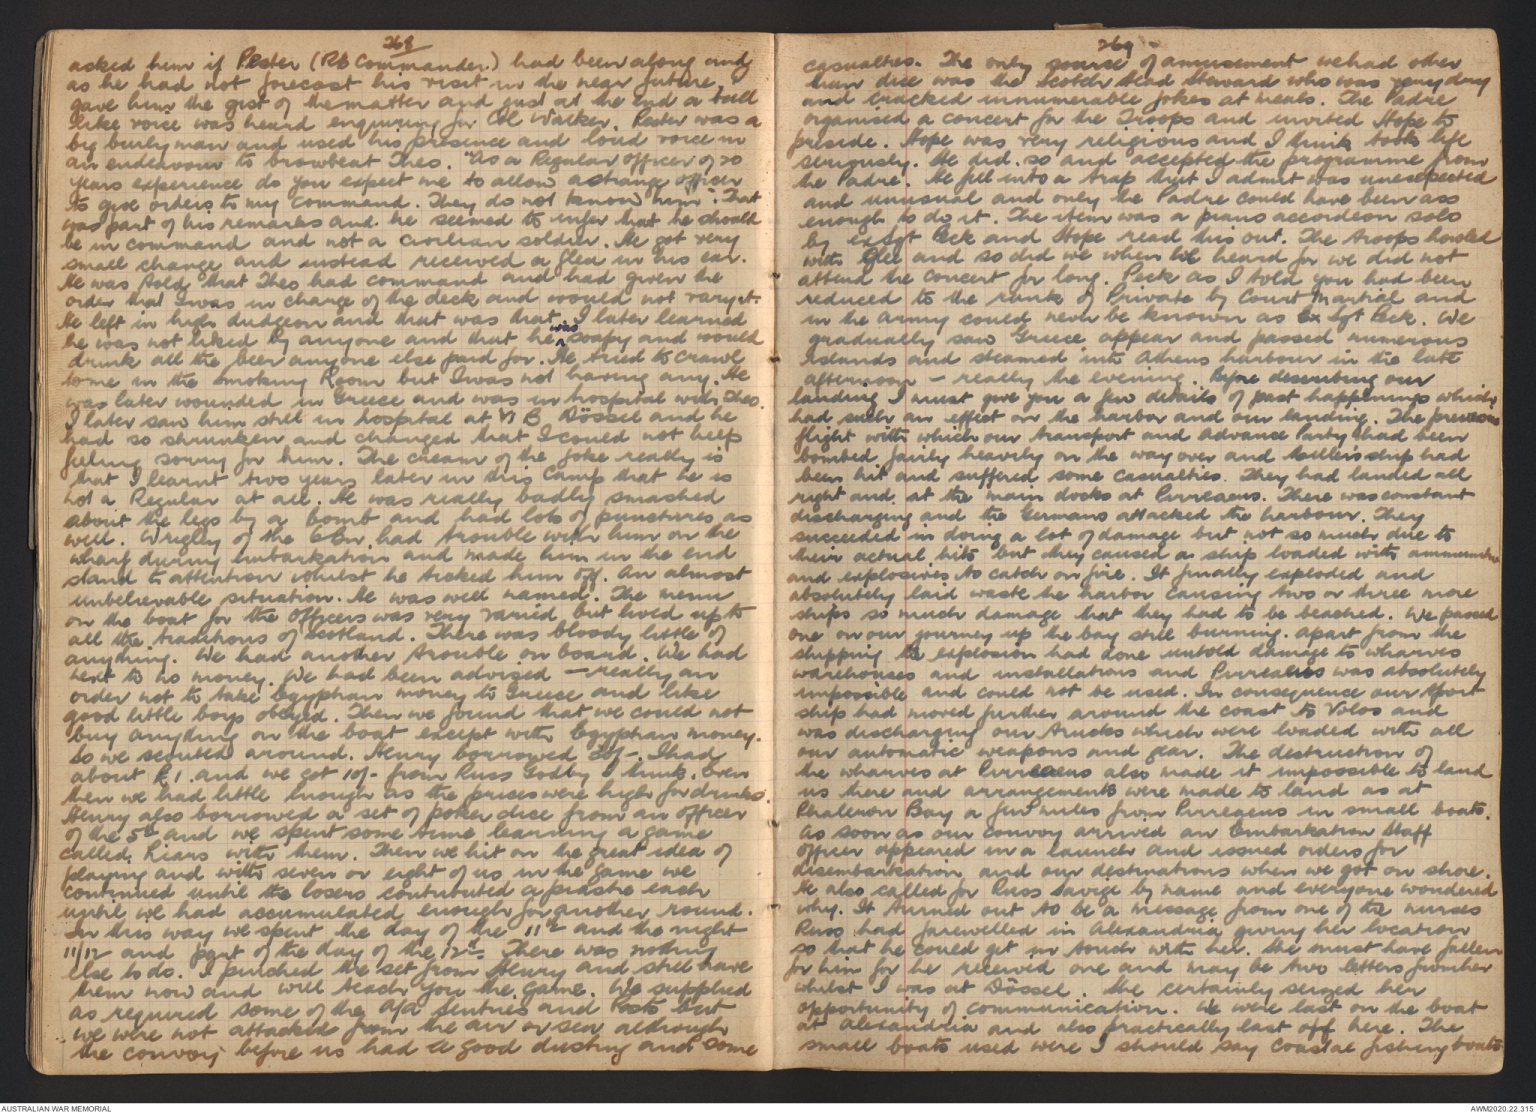 268
asked him if Pester (Rb Commander) had been along and
as he had not forecast his visit in the near future,
gave him the gist of the matter and just at the end a bull
like voice was heard enquiring for Col Walker. Pester was a
big burly man and used his presence and loud voice in
an endeavour to browbeat Theo. "As a Regular officer of 20
years experience do you expect me to allow a strange officer
to give orders to my command. They do not know him". That
was part of his remarks and he seemed to infer that he should
be in command and not a civilian soldier. He got very
small change and instead received a flea in his ear.
He was told that Theo had command and had given the
order that I was in charge of the deck and would not vary it.
He left in high dudgeon and that was that. I later learned
he was not liked by anyone and that he was soapy and would
drink all the beer anyone else paid for. He tried to crawl
to me in the Smoking Room but I was not having any. He
was later wounded in Greece and was in hospital with Theo.
I later saw him still in hospital at VI B Dössel and he
had so shrunken and changed that I could not help
feeling sorry for him. The cream of the joke really is
that I learnt two years later in this Camp that he is
not a Regular at all. He was really badly smashed
about the legs by a bomb and had lots of punctures as
well. Wrigley of the 6th had trouble with him on the
wharf during embarkation and made him in the end
stand to attention whilst he ticked him off. An almost
unbelievable situation. He was well named. The menu
on the boat for the Officers was very varied but lived up to
all the traditions of Scotland. There was bloody little of
anything. We had another trouble on board. We had
next to no money. We had been advised – really an
order not to take Egyptian money to Greece and like
good little boys obeyed. Then we found that we could not
buy anything on the boat except with Egyptian money.
So we scouted around. Henry borrowed I had
about £1. and we got 10/- from Russ Godby I think. Even
then we had little enough as the prices were high for drinks.
Henry also borrowed a set of poker dice from an officer
of the 5th and we spent some time learning a game
called Liars with them. Then we hit on the great idea of
playing and with seven or eight of us in the game we
continued until the losers contributed a piastre each
until we had accumulated enough for another round.
In this way we spent the day of the 11th and the night
11/12 and part of the day of the 12th. There was nothing
else to do. I pinched the set from Henry and still have
them now and will teach you the game. We supplied
as required some of the A/A Sentries and Posts but
we were not attacked from the air or sea although
the convoy before us had a good dusting and some
269
casualties. The only source of amusement we had other
than dice was the Scotch Head Steward who was very dry
and cracked innumerable jokes at meals. The Padre
organised a concert for the Troops and invited Hope to
preside. Hope was very religious and I think took life
seriously. He did so and accepted the programme from
the Padre. He fell into a trap that I admit was unexpected
and unusual and only the Padre could have been ass
enough to do it. The item was a piano accordeon solo
by ex Sgt Peck and Hope read this out. The troops howled
with glee and so did we when we heard for we did not
attend the concert for long. Peck as I told you had been
reduced to the rank of Private by Court Martial and
in the Army could never be known as Ex Sgt Peck. We
gradually saw Greece appear and passed numerous
islands and steamed into Athens harbour in the late
afternoon – really the evening. Before describing our
landing I must give you a few details of past happenings which
had such an effect on the harbor and our landing. The previous
flight with which our transport and Advance Party had been
bombed fairly heavily on the way over and ship had
been hit and suffered some casualties. They had landed all
right and at the main docks at Pirreaeus. There was constant
discharging and the Germans attacked the harbour. They
succeeded in doing a lot of damage but not so much due to
their actual hits but they caused a ship loaded with ammunition
and explosives to catch on fire. It finally exploded and
absolutely laid waste the harbor causing two or three more
ships so much damage that they had to be beached. We passed
one on our journey up the bay still burning. Apart from the
shipping the explosion had done untold damage to wharves
warehouses and installations and Pirreaeus was absolutely
impossible and could not be used. In consequence our Sport
ship had moved further around the coast to Volos and
was discharging our trucks which were loaded with all
our automatic weapons and gear. The destruction of
the wharves at Pirreaeus also made it impossible to land
us there and arrangements were made to land as at
Phaleron Bay a few miles from Pirreaeus in small boats.
As soon as our convoy arrived an Embarkation Staff
Officer appeared in a launch and issued orders for
disembarkation and our destinations when we got on shore.
He also called for Russ Savige by name and everyone wondered
why. It turned out to be a message from one of the nurses
Russ had farewelled in Alexandria giving her location
so that he could get in touch with her. She must have fallen
for him for he received one and may be two letters from her
whilst I was at Dössel. She certainly seized her
opportunity of communication. We were last on the boat
at Alexandria and also practically last off here. The
small boats used were I should say coastal fishing boats
AUSTRALIAN WAR MEMORIAL
AWM2020.22.315